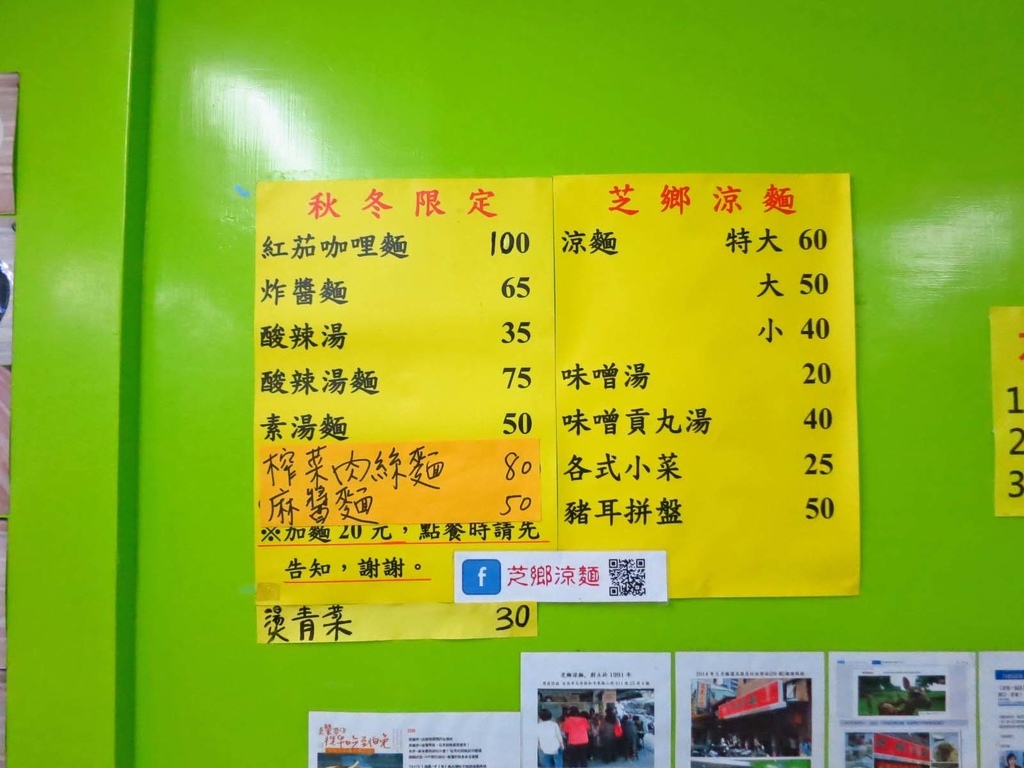 秋冬限定
紅茄咖哩麵 100
炸醬麵 65
酸辣湯 35
酸辣湯麵 75
素湯麵 50
榨菜肉絲麵 80
麻醬麵 50
※加麵20元，點餐時請先
告知，謝謝。
燙青菜 30
芝鄉涼麵
涼麵 特大 60
大 50
小 40
味噌湯 20
味噌貢丸湯 40
各式小菜 25
豬耳拼盤 50
f 芝鄉涼麵
1
2
3
芝鄉涼麵，創立於1991年